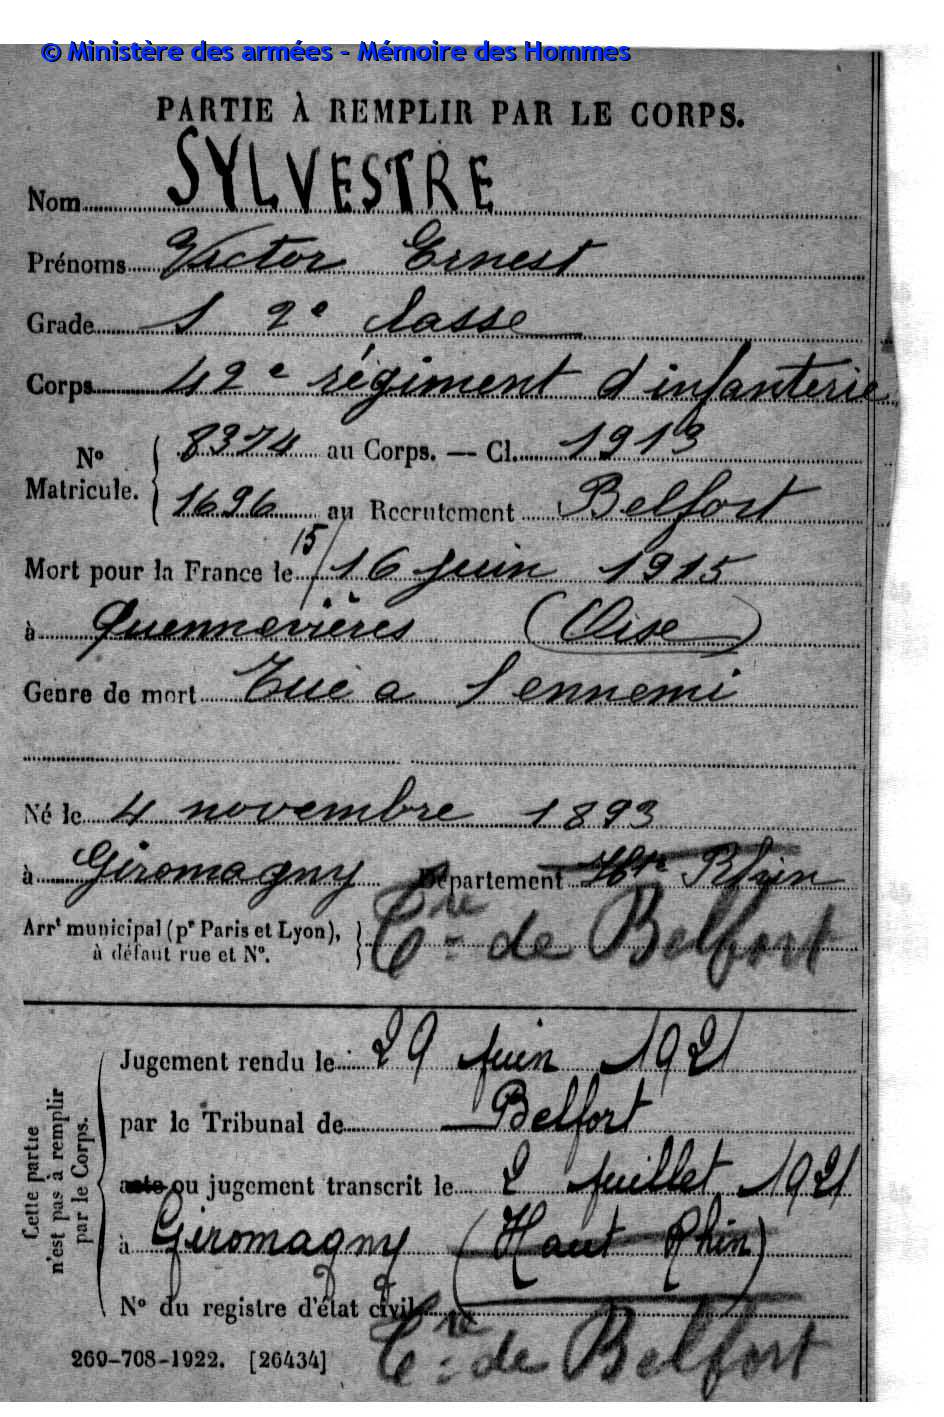 © Ministère des armées - Mémoire des Hommes
PARTIE À REMPLIR PAR LE CORPS.
Nom SYLVESTRE
Prénoms Victor Ernest
Grade S 2e classe
Corps 42e régiment d'infanterie
No Matricule. { 8374 au Corps. — Cl. 1913
1696 au Recrutement Belfort
Mort pour la France le 15/16 juin 1915
à Quennevières (Oise)
Genre de mort Tué a l'ennemi
Né le 4 novembre 1893
à Giromagny Département Hte Rhin
Arrt municipal (pr Paris et Lyon), à défaut rue et No. } Tre de Belfort
Cette partie n'est pas à remplir par le Corps.
Jugement rendu le 29 Juin 1921
par le Tribunal de Belfort
acte ou jugement transcrit le 2 Juillet 1921
à Giromagny (Haut Rhin)
No du registre d'état civil
Tre de Belfort
269-708-1922. [26434]